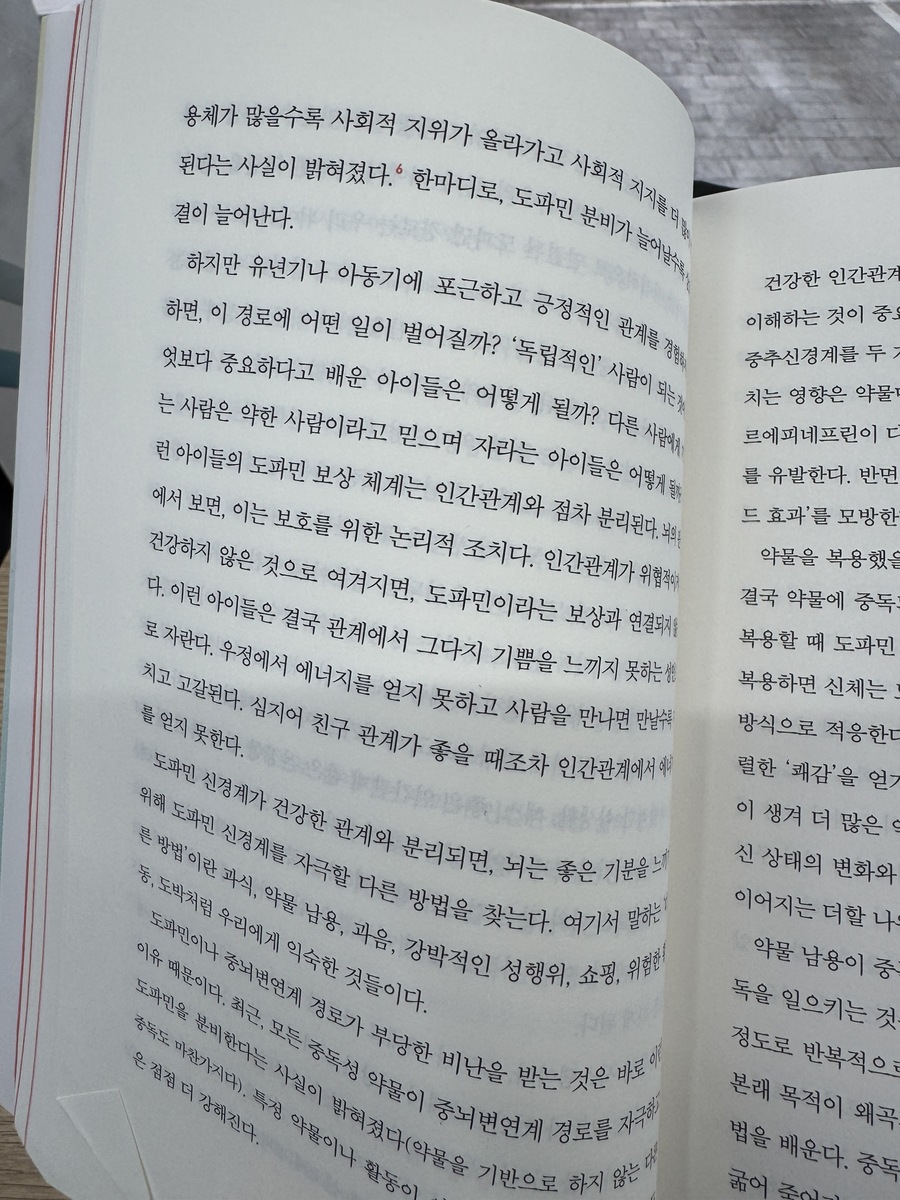 용체가 많을수록 사회적 지위가 올라가고 사회적 지지를 더
된다는 사실이 밝혀졌다.⁶ 한마디로, 도파민 분비가 늘어날수록
결이 늘어난다.
하지만 유년기나 아동기에 포근하고 긍정적인 관계를
하면, 이 경로에 어떤 일이 벌어질까? ‘독립적인’ 사람이 되는
엇보다 중요하다고 배운 아이들은 어떻게 될까? 다른 사람에게
는 사람은 약한 사람이라고 믿으며 자라는 아이들은 어떻게
런 아이들의 도파민 보상 체계는 인간관계와 점차 분리된다. 뇌의
에서 보면, 이는 보호를 위한 논리적 조치다. 인간관계가
건강하지 않은 것으로 여겨지면, 도파민이라는 보상과 연결되지
다. 이런 아이들은 결국 관계에서 그다지 기쁨을 느끼지 못하는
로 자란다. 우정에서 에너지를 얻지 못하고 사람을 만나면 만날수록
치고 고갈된다. 심지어 친구 관계가 좋을 때조차 인간관계에서
를 얻지 못한다.
도파민 신경계가 건강한 관계와 분리되면, 뇌는 좋은 기분을
위해 도파민 신경계를 자극할 다른 방법을 찾는다. 여기서 말하는
른 방법’이란 과식, 약물 남용, 과음, 강박적인 성행위, 쇼핑, 위험한
동, 도박처럼 우리에게 익숙한 것들이다.
도파민이나 중뇌변연계 경로가 부당한 비난을 받는 것은 바로
이유 때문이다. 최근, 모든 중독성 약물이 중뇌변연계 경로를 자극하고
도파민을 분비한다는 사실이 밝혀졌다(약물을 기반으로 하지 않는
중독도 마찬가지다). 특정 약물이나 활동이
은 점점 더 강해진다.
건강한 인간관계
이해하는 것이
중추신경계를 두
치는 영향은
르에피네프린이
를 유발한다. 반면
드 효과’를 모방한
약물을 복용했을
결국 약물에
복용할 때 도파민
복용하면 신체는
방식으로 적응한다
렬한 ‘쾌감’을
이 생겨 더 많은
신 상태의 변화와
이어지는 더할
약물 남용이
독을 일으키는
정도로 반복적으로
본래 목적이
법을 배운다.
굶어